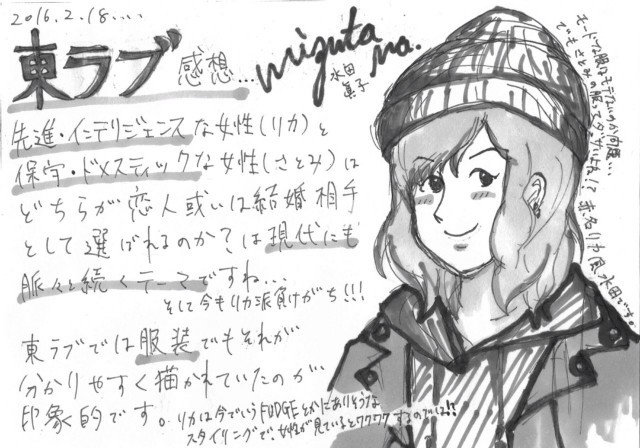 2016.2.18....
東ラブ 感想...
mizuta ma.
水田
先進・インテリジェンスな女性(リカ)と
保守・ドメスティックな女性(さとみ)は
どちらが恋人或いは結婚相手
として選ばれるのか?は現代にも
脈々と続くテーマですね...
そして今もリカ派負けがち!!!
東ラブでは服装でもそれが
分かりやすく描かれていたのが
印象的です。リカは今でいうFUDGEとかにありそうな
スタイリングで、女性が見ているとワクワクするのでは!?
モードな服はモテないのか問題...
でもさとみの服ってダサいよね!?
赤名リカ風水田です。